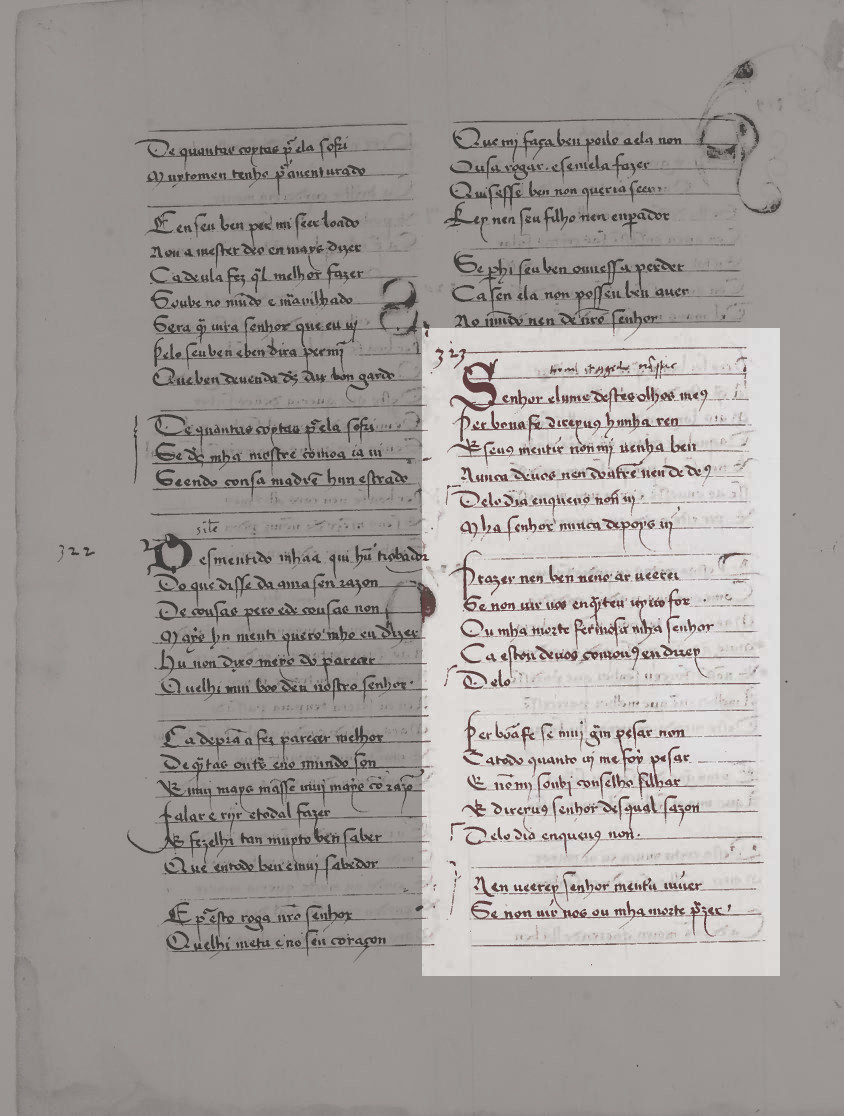 De quantas coytas p̃ ela sofri
Muytomen tenho p̃ auenturado
E en seu ben per mi seer loado
Non a mester deo en mays dizer
Ca deula fez q̃l melhor fazer
Soube no mũdo e marauilhado
Sera q̃ uira senhor que eu ui
Pelo seu ben e ben dira per mĩ
Que ben deuenda d's̃ dar bon grado
De quantas coytas p̃ ela sofri
Se d's̃ mha mostre como a ia ui
Seendo con sa madr̃e hun estrado
322
Desmentido mhaa qui hũ trobador
Do que disse da ama sen razon
De cousas pero e de cousas non
Mays hu menti quero mho eu dizer
Hu non dixo meyo do parecer
Quelhi mui boo deu nostro senhor
Ca de p̃a a fez parecer melhor
De q̃tas outs̃ eno mundo son
E mui mays mãsse muj mays cõ razõ
Falar e rijr e todal fazer
E fezelhi tan muyto ben saber
Que en todo ben e muj sabedor
E p̃ esto rogā nr̃o senhor
Quelhi meta eno seu coraçon
Que mi faça ben poilo a ela non
Ousa rogar. e semela fazer
Quisesse ben non queria seer
Rey nen seu filho nen enp̃ador
Se p̃ hi seu ben ouuessa perder
Ca sen ela non posseu ben auer
No mũdo nen de nr̃o senhor
323
Senhor e lume destes olhos me9
Per bona fe direyu9 hunha ren
E seu9 mentir non mj uenha ben
Nunca de uos nen doutrẽ nen de de9
Delo dia en que uo9 non ui
Mha senhor nunca depoys ui
Prazer nen ben neno ar ueerei
Se non uir uos enq̃teu uyuo for
Ou mha morte fermosa mha senhor
Ca estou de uos como u9 en direy
Delo
Per boã fe se muj g̃m pesar non
Ca todo quanto ui me foy pesar
E nõ mi soubj conselho filhar
E direyu9 senhor des qual sazon
Delo dia en queu9 non
Nen ueerey senhor mentr̃u uiuer
Se non uir uos ou mha morte p̃zer